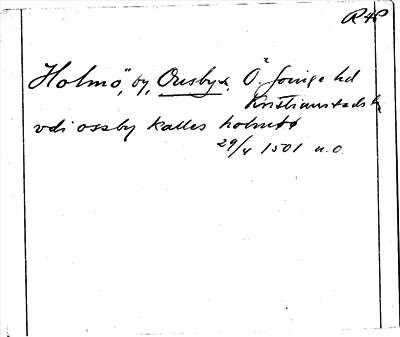 RAP
Holmö, by, Ousby s, Ö. Göinge hd
Kristianstads l
vdi ossby kalles holmöö
29/4 1501 u. o.